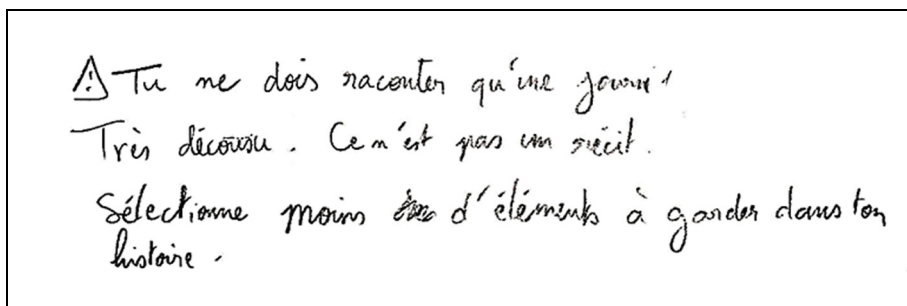 ⚠ Tu ne dois raconter qu'une journé
Très décousu. Ce n'est pas un récit.
Sélectionne moins d'éléments à garder dans ton
histoire.